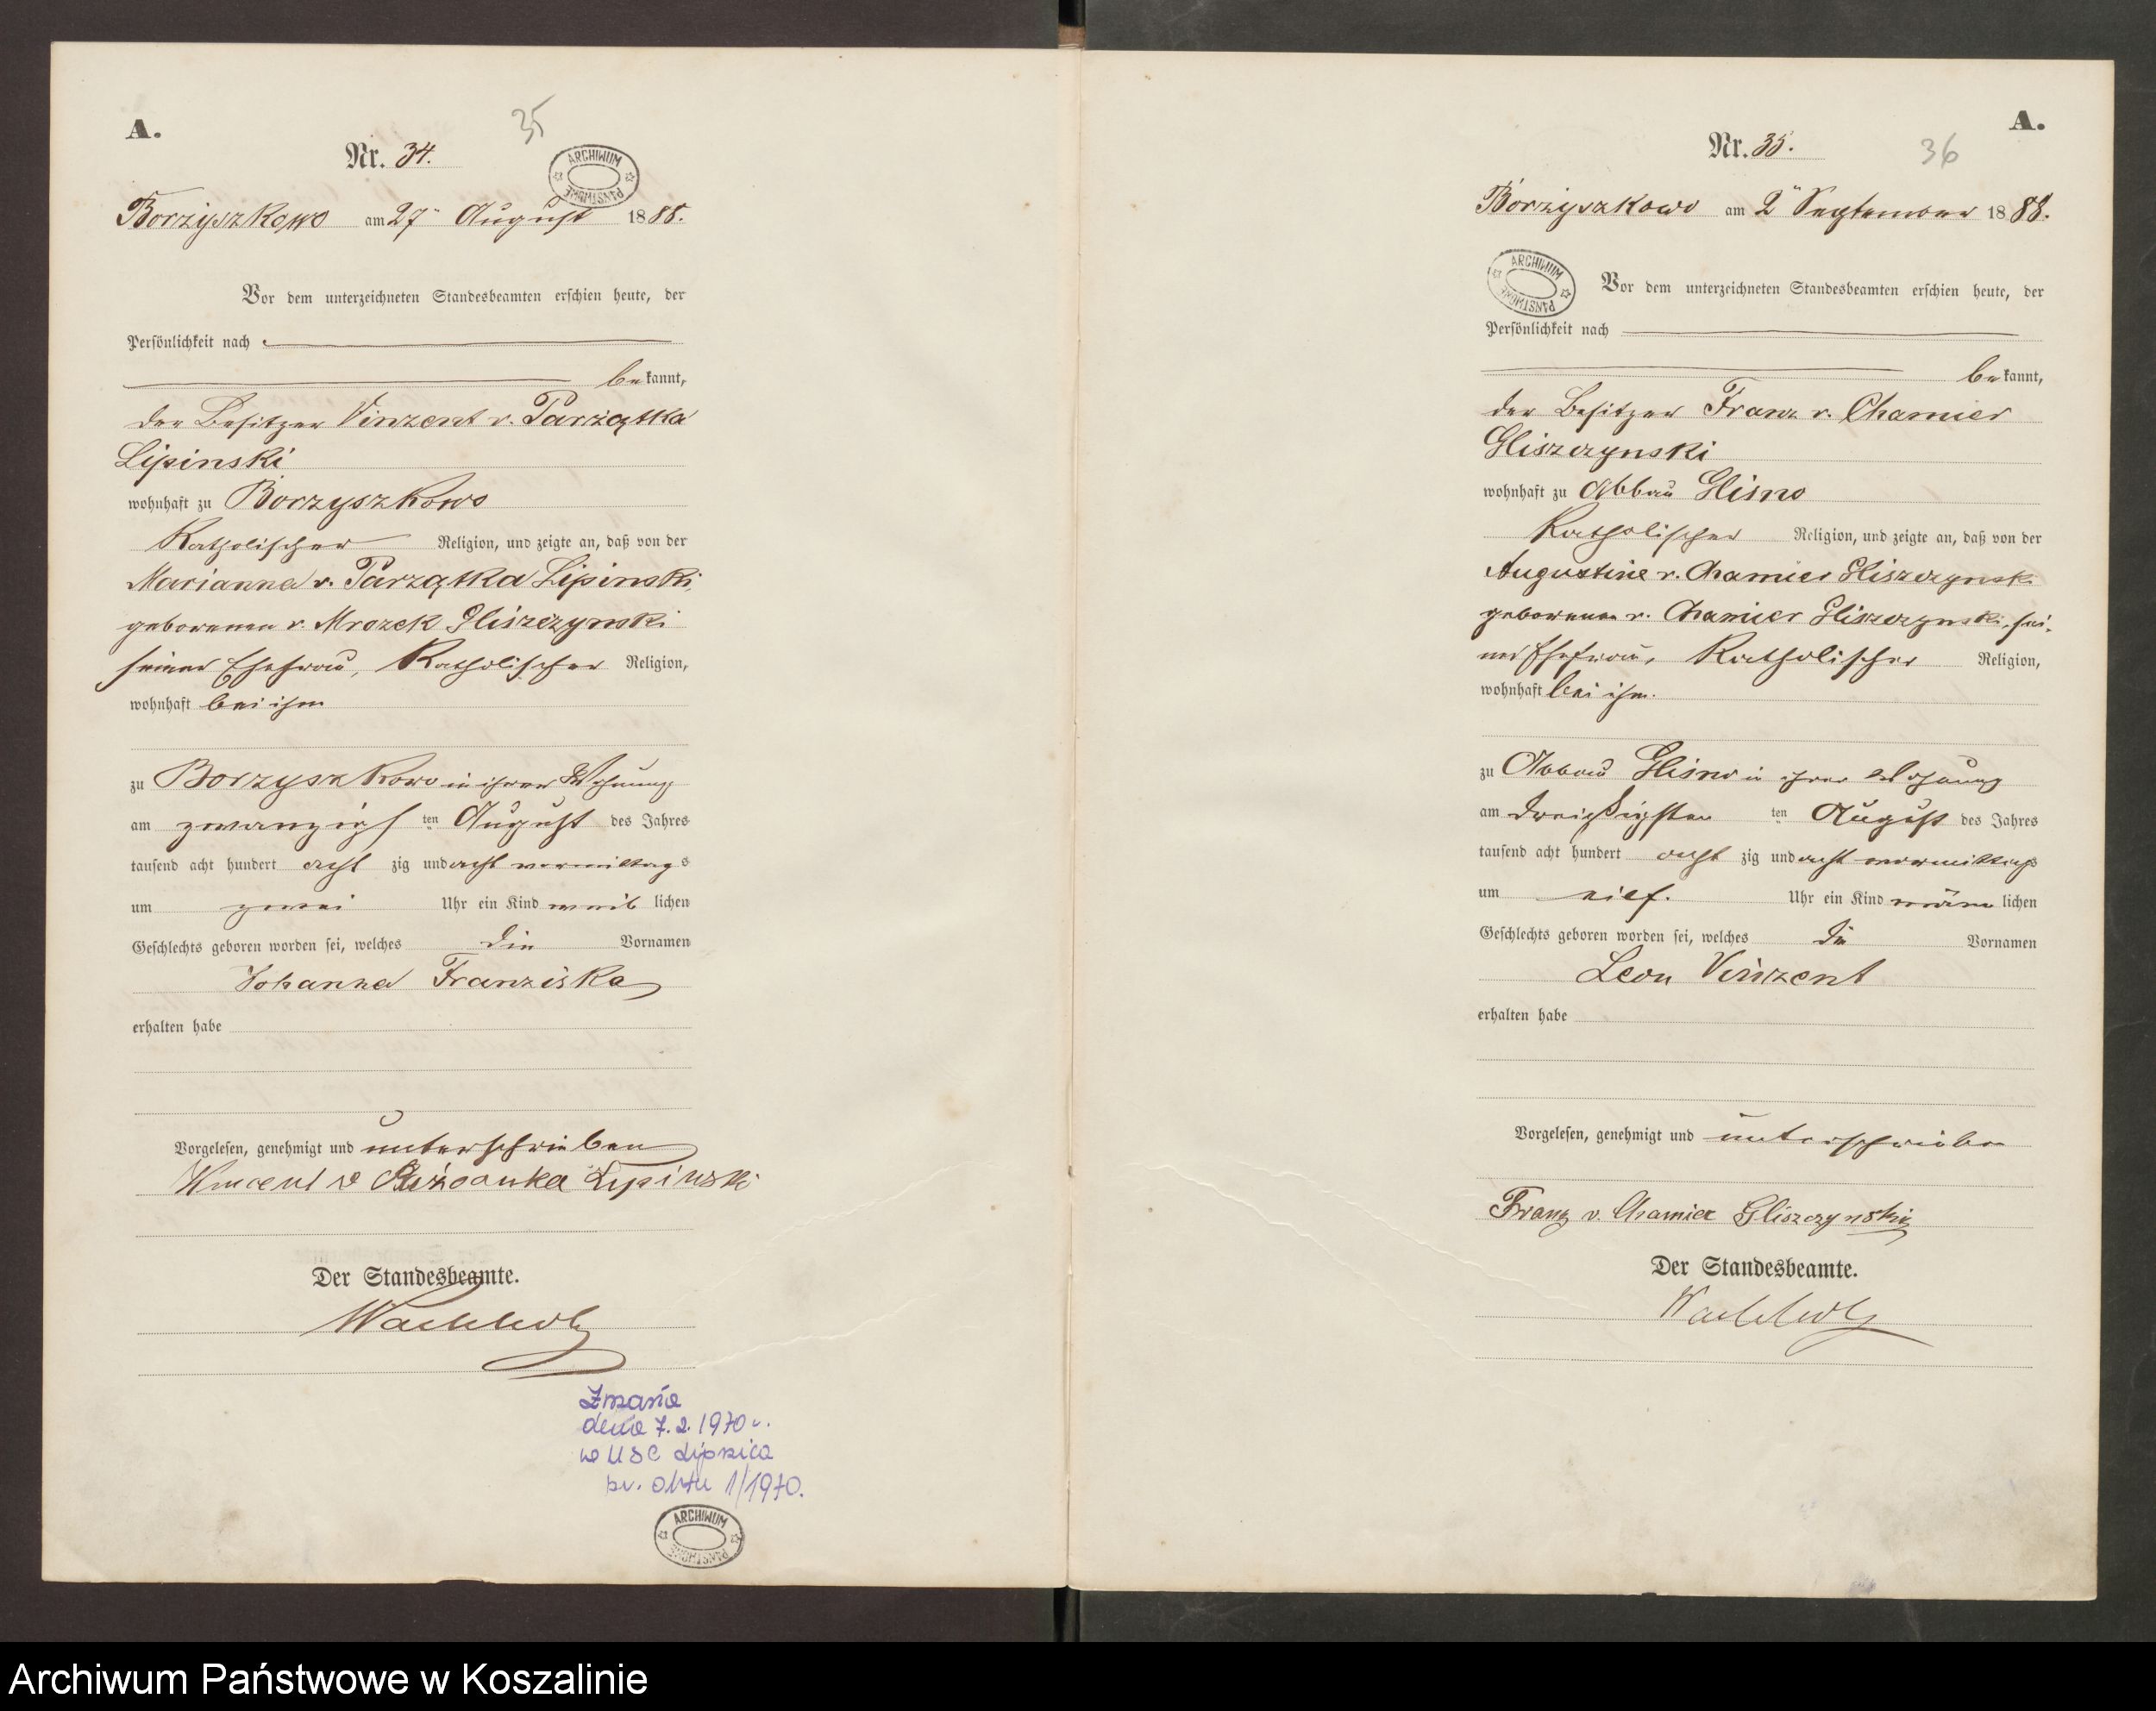 A.
35
Nr. 34.
ARCHIWUM PAŃSTWOWE
Borzyszkowo am 27ⁿ August 1888.
Vor dem unterzeichneten Standesbeamten erschien heute, der
Persönlichkeit nach
bekannt,
der Besitzer Vinzent v. Parzątka
Lipinski
wohnhaft zu Borzyszkowo
Katholischer Religion, und zeigte an, daß von der
Marianna v. Parzątka Lipinski,
geborenen v. Mrozek Gliszczynski
seiner Ehefrau, Katholischer Religion,
wohnhaft bei ihm
zu Borzyszkowo in ihrer Wohnung
am zwanzigsten August des Jahres
tausend acht hundert achtzig und acht vormittags
um zwei Uhr ein Kind weiblichen
Geschlechts geboren worden sei, welches die Vornamen
Johanna Franziska
erhalten habe
Vorgelesen, genehmigt und unterschrieben
Lipinski
Der Standesbeamte.
Wachholz
Zmarła
dnia 7.2.1970 r.
w USC Lipnica
nr. aktu 1/1970.
ARCHIWUM PAŃSTWOWE
A.
Nr. 35.
36
Borzyszkowo am 2ⁿ September 1888.
ARCHIWUM PAŃSTWOWE
Vor dem unterzeichneten Standesbeamten erschien heute, der
Persönlichkeit nach
bekannt,
der Besitzer Franz v. Chamier
Gliszczynski
wohnhaft zu Abbau Glisno
Katholischer Religion, und zeigte an, daß von der
Augustine v. Chamier Gliszczynski
geborenen v. Chamier Gliszczynski, sei-
ner Ehefrau, Katholischer Religion,
wohnhaft bei ihm.
zu Abbau Glisno in ihrer Wohnung
am dreißigsten ten August des Jahres
tausend acht hundert achtzig und acht vormittags
um eilf. Uhr ein Kind männlichen
Geschlechts geboren worden sei, welches die Vornamen
Leon Vinzent
erhalten habe
Vorgelesen, genehmigt und unterschrieben
Franz v. Chamier Gliszczynski
Der Standesbeamte.
Wachholz
Archiwum Państwowe w Koszalinie